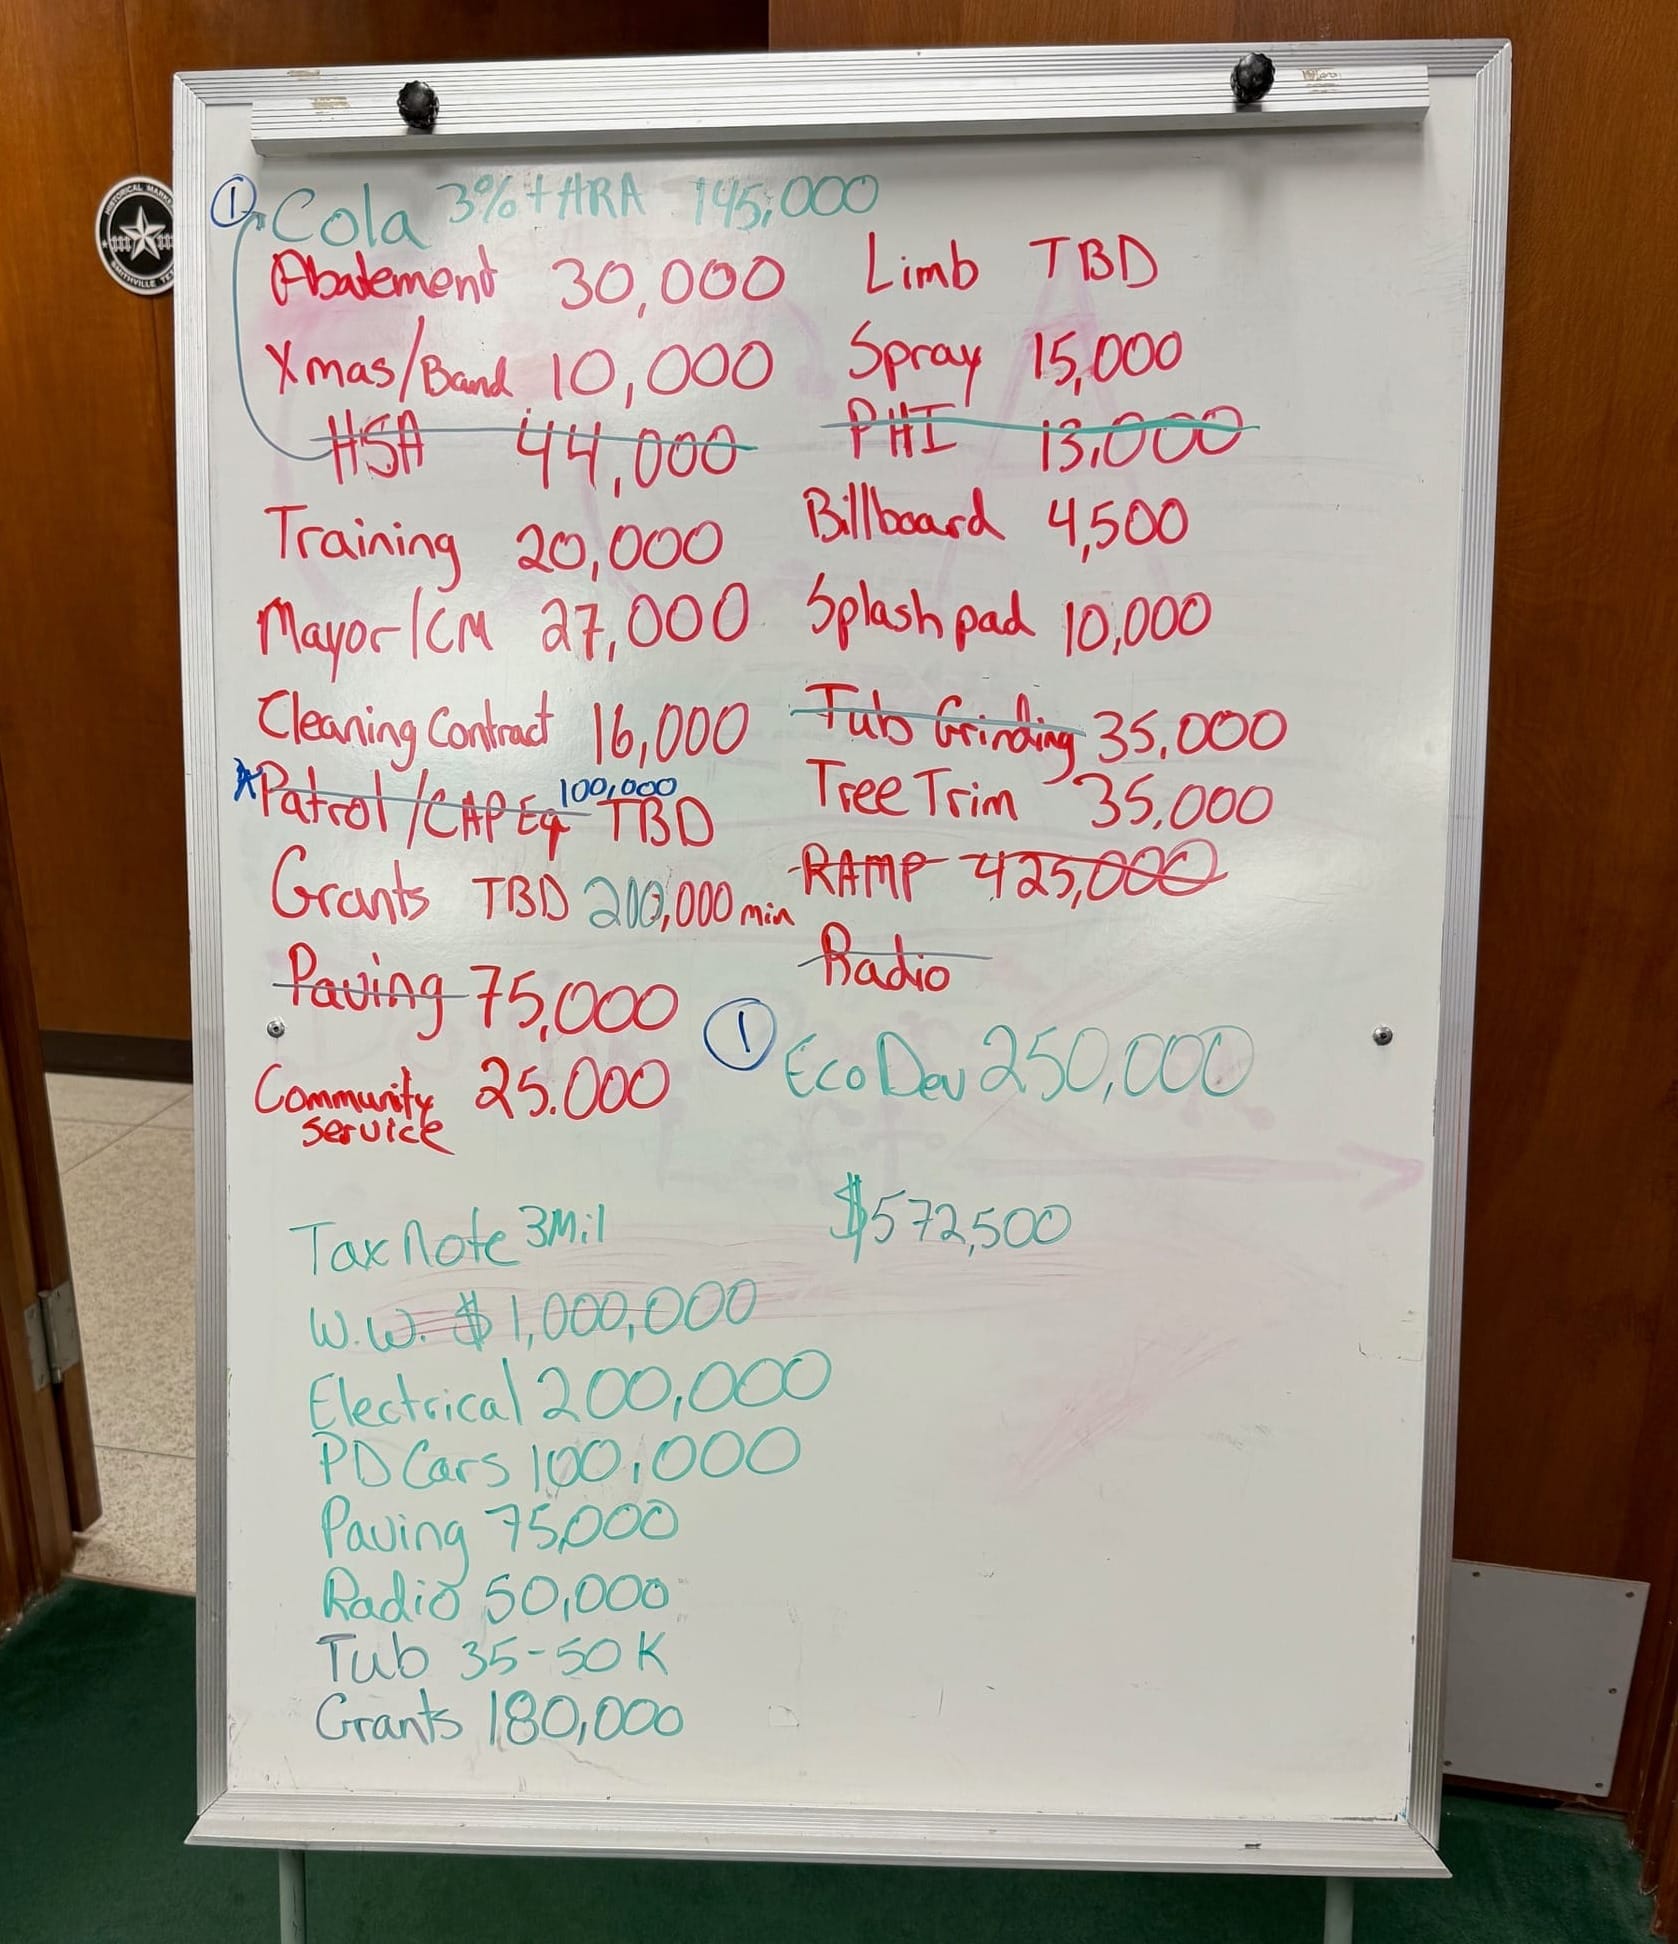 ① Cola 3% + HRA 145,000
Abatement 30,000
Xmas/Band 10,000
HSA 44,000
Training 20,000
Mayor/CM 27,000
Cleaning Contract 16,000
*Patrol/CAP Eq 100,000 TBD
Grants TBD 200,000 min
Paving 75,000
Community
service 25.000
Limb TBD
Spray 15,000
PHI 13,000
Billboard 4,500
Splash pad 10,000
Tub Grinding 35,000
Tree Trim 35,000
RAMP 425,000
Radio
① Eco Dev 250,000
$572,500
Tax Note 3Mil
W.W. $1,000,000
Electrical 200,000
PD Cars 100,000
Paving 75,000
Radio 50,000
Tub 35-50K
Grants 180,000
HISTORICAL
SMITHVILLE